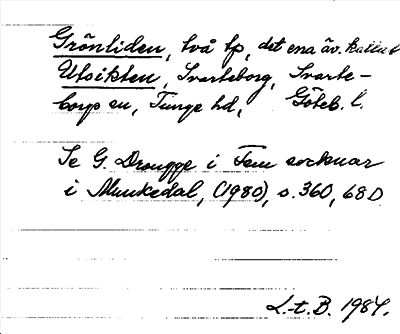 Grönliden, två tp, det ena äv. kallat
Utsikten, Svarteborg, Svarte-
borgs sn, Tunge hd, Göteb. l.
Se G. Drougge i Fem socknar
i Munkedal, (1980), s. 360, 680
L.t.B. 1984.